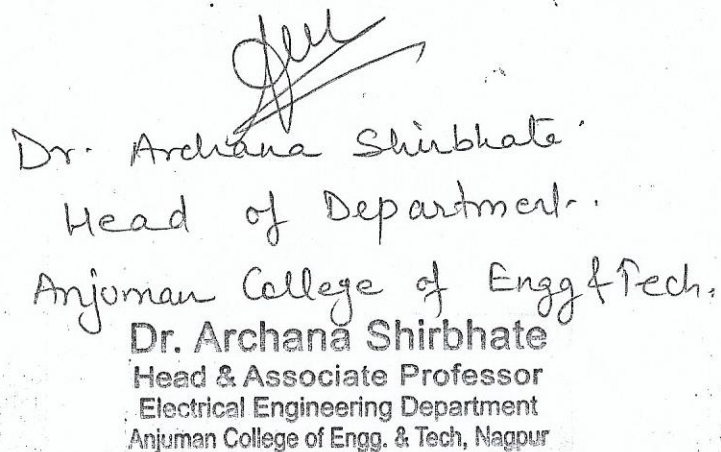 Dr. Archana Shirbhate.
Head of Department..
Anjuman College of Engg & Tech.
Dr. Archana Shirbhate
Head & Associate Professor
Electrical Engineering Department
Anjuman College of Engg. & Tech, Nagpur